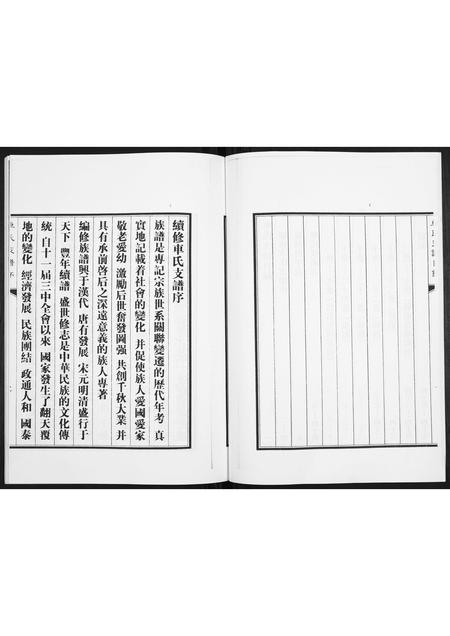 續修車氏支譜序
族譜是專記宗族世系關聯變遷的歷代年考 真
實地記載着社會的變化 并促使族人愛國愛家
敬老愛幼 激勵后世奮發圖强 共創千秋大業 并
具有承前啓后之深遠意義的族人專著
編修族譜興于漢代 唐有發展 宋元明清盛行于
天下 豐年續譜 盛世修志是中華民族的文化傳
統 自十一届三中全會以來 國家發生了翻天覆
地的變化 經濟發展 民族團結 政通人和 國泰